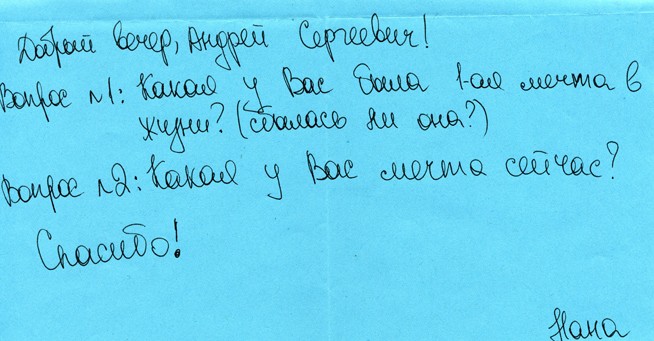 Добрый вечер, Андрей Сергеевич!
Вопрос №1: Какая у Вас была 1-ая мечта в
жизни? (сбылась ли она?)
Вопрос №2: Какая у Вас мечта сейчас?
Спасибо!
Нана